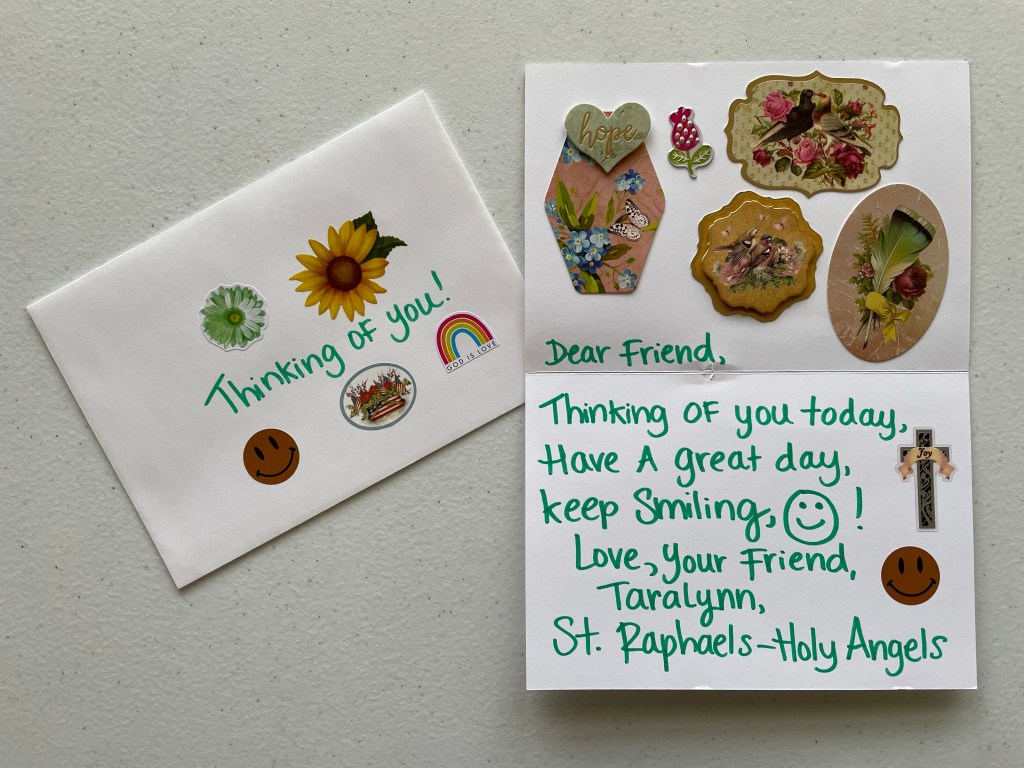 Thinking of you!
GOD IS LOVE
hope
Dear Friend,
Thinking of you today,
Have A great day,
keep Smiling, !
Joy
Love, your Friend,
Taralynn,
St. Raphaels-Holy Angels